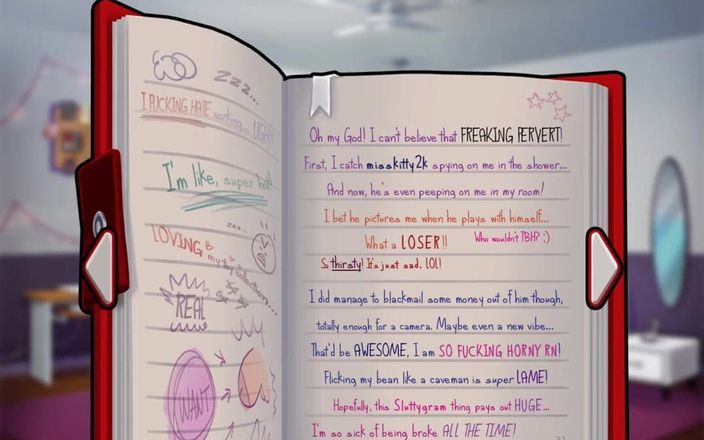 zzz...
I FUCKING HATE working... UGH!
I'm like, super hot!
zzz...
LOVING my toy collection...
REAL
$ $ $
WANT
Oh my God! I can't believe that FREAKING PERVERT!
First, I catch misskitty2k spying on me in the shower...
And now, he's even peeping on me in my room!
I bet he pictures me when he plays with himself...
What a LOSER!! Who wouldn't TBH? ;)
So thirsty! It's just sad. LOL!
I did manage to blackmail some money out of him though,
totally enough for a camera. Maybe even a new vibe...
That'd be AWESOME, I am SO FUCKING HORNY RN!
Flicking my bean like a caveman is super LAME!
Hopefully, this Sluttygram thing pays out HUGE...
I'm so sick of being broke ALL THE TIME!